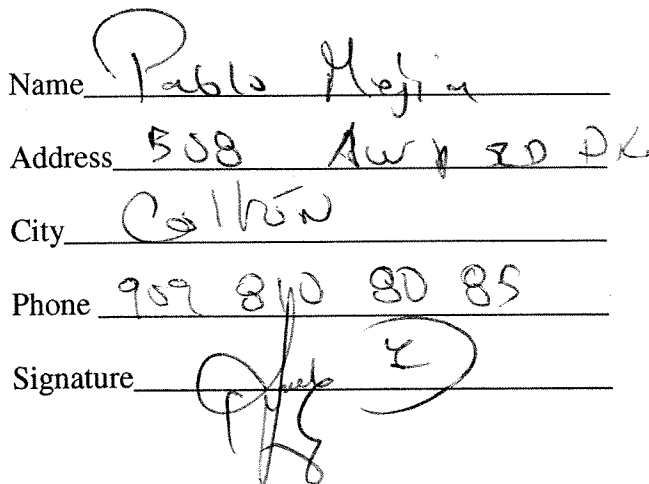 Name Pablo Mejia
Address 508
City Colton
Phone 909 810 80 85
Signature